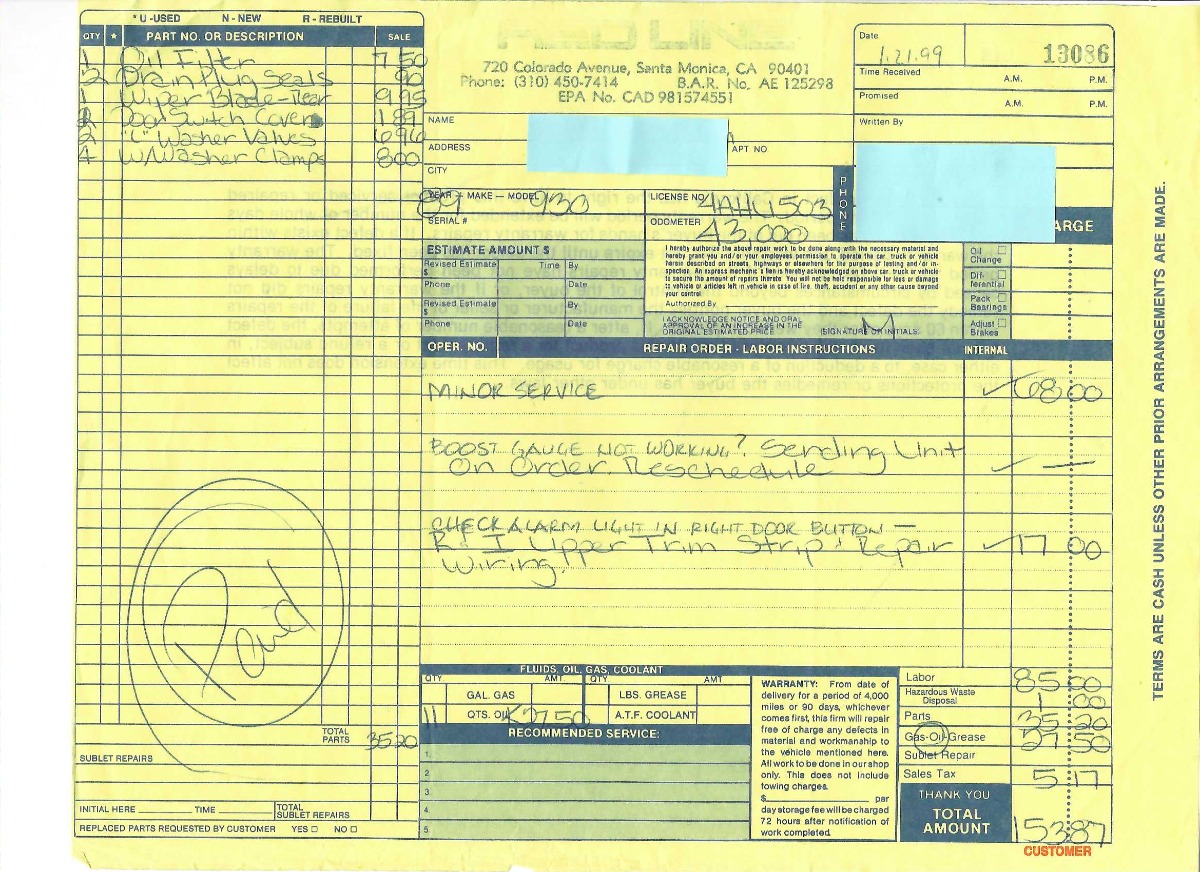 * U-USED N-NEW R-REBUILT
QTY * PART NO. OR DESCRIPTION SALE
1 Oil Filter 7 50
2 Drain Plug Seals 90
1 Wiper Blade-Rear 9 95
Door Switch Cover 1 89
2 "L" Washer Valves 6 96
4 W/Washer Clamps 8 00
Paid
TOTAL PARTS 35 20
SUBLET REPAIRS
INITIAL HERE TIME TOTAL SUBLET REPAIRS
REPLACED PARTS REQUESTED BY CUSTOMER YES NO
RED LINE
720 Colorado Avenue, Santa Monica, CA 90401
Phone: (310) 450-7414 B.A.R. No. AE 125298
EPA No. CAD 981574551
Date 1.21.99 13086
Time Received A.M. P.M.
Promised A.M. P.M.
Written By
NAME
ADDRESS APT NO.
CITY
PHONE
YEAR - MAKE - MODEL 89 930 LICENSE NO. 4AHU503
SERIAL # ODOMETER 43,000
ARGE
ESTIMATE AMOUNT $
Revised Estimate $ Time By
Phone Date
Revised Estimate $ By
Phone Date
I hereby authorize the above repair work to be done along with the necessary material and
hereby grant you and/or your employees permission to operate the car, truck or vehicle
herein described on streets, highways or elsewhere for the purpose of testing and/or in-
spection. An express mechanic's lien is hereby acknowledged on above car, truck or vehicle
to secure the amount of repairs thereto. You will not be held responsible for loss or damage
to vehicle or articles left in vehicle in case of fire, theft, accident or any other cause beyond
your control.
Authorized By
I ACKNOWLEDGE NOTICE AND ORAL
APPROVAL OF AN INCREASE IN THE
ORIGINAL ESTIMATED PRICE (SIGNATURE OR INITIALS)
Oil Change
Differential
Pack Bearings
Adjust Brakes
OPER. NO. REPAIR ORDER - LABOR INSTRUCTIONS INTERNAL
MINOR SERVICE ✓ 68 00
BOOST GAUGE NOT WORKING? Sending Unit
On Order. Reschedule ✓ —
CHECK ALARM LIGHT IN RIGHT DOOR BUTTON —
R + I Upper Trim Strip + Repair ✓ 17 00
Wiring!!
FLUIDS, OIL, GAS, COOLANT
QTY. AMT. QTY. AMT
GAL. GAS LBS. GREASE
11 QTS. OIL 27 50 A.T.F. COOLANT
RECOMMENDED SERVICE:
1.
2.
3.
4.
5.
WARRANTY: From date of
delivery for a period of 4,000
miles or 90 days, whichever
comes first, this firm will repair
free of charge any defects in
material and workmanship to
the vehicle mentioned here.
All work to be done in our shop
only. This does not include
towing charges.
$ per
day storage fee will be charged
72 hours after notification of
work completed.
Labor 85 00
Hazardous Waste Disposal 1 00
Parts 35 20
Gas-Oil-Grease 27 50
Sublet Repair
Sales Tax 5 17
THANK YOU
TOTAL AMOUNT 153 87
CUSTOMER
TERMS ARE CASH UNLESS OTHER PRIOR ARRANGEMENTS ARE MADE.